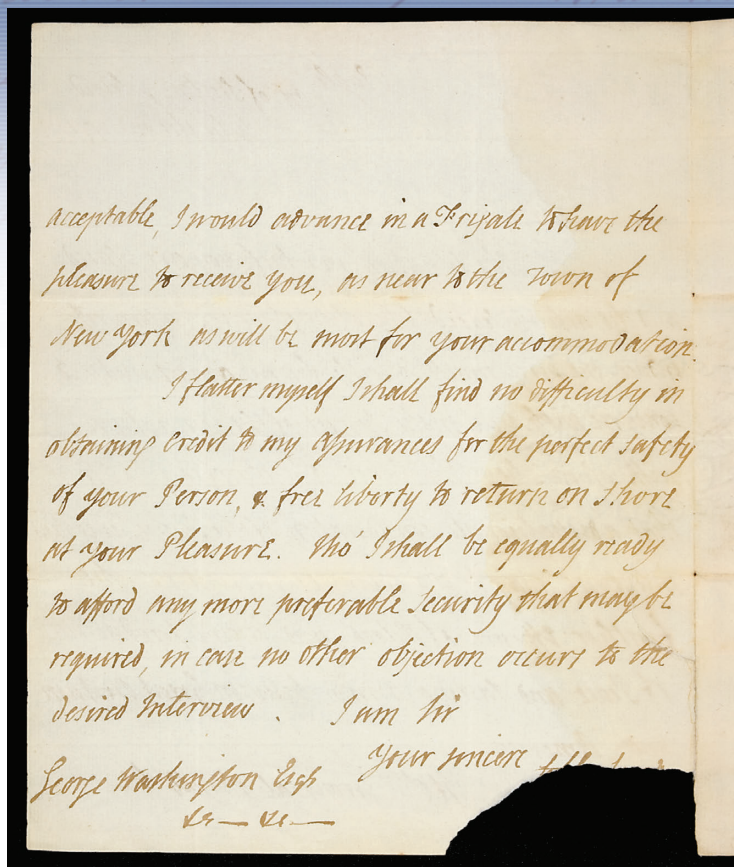 acceptable, I would advance in a Frigate to have the
pleasure to receive you, as near to the Town of
New York as will be most for your accommodation.
I flatter myself I shall find no difficulty in
obtaining Credit to my assurances for the perfect safety
of your Person, & free liberty to return on Shore
at your Pleasure. Tho' I shall be equally ready
to afford any more preferable Security that may be
required, in case no other objection occurs to the
desired Interview. I am Sir
Your sincere
George Washington Esqr
&c — &c —